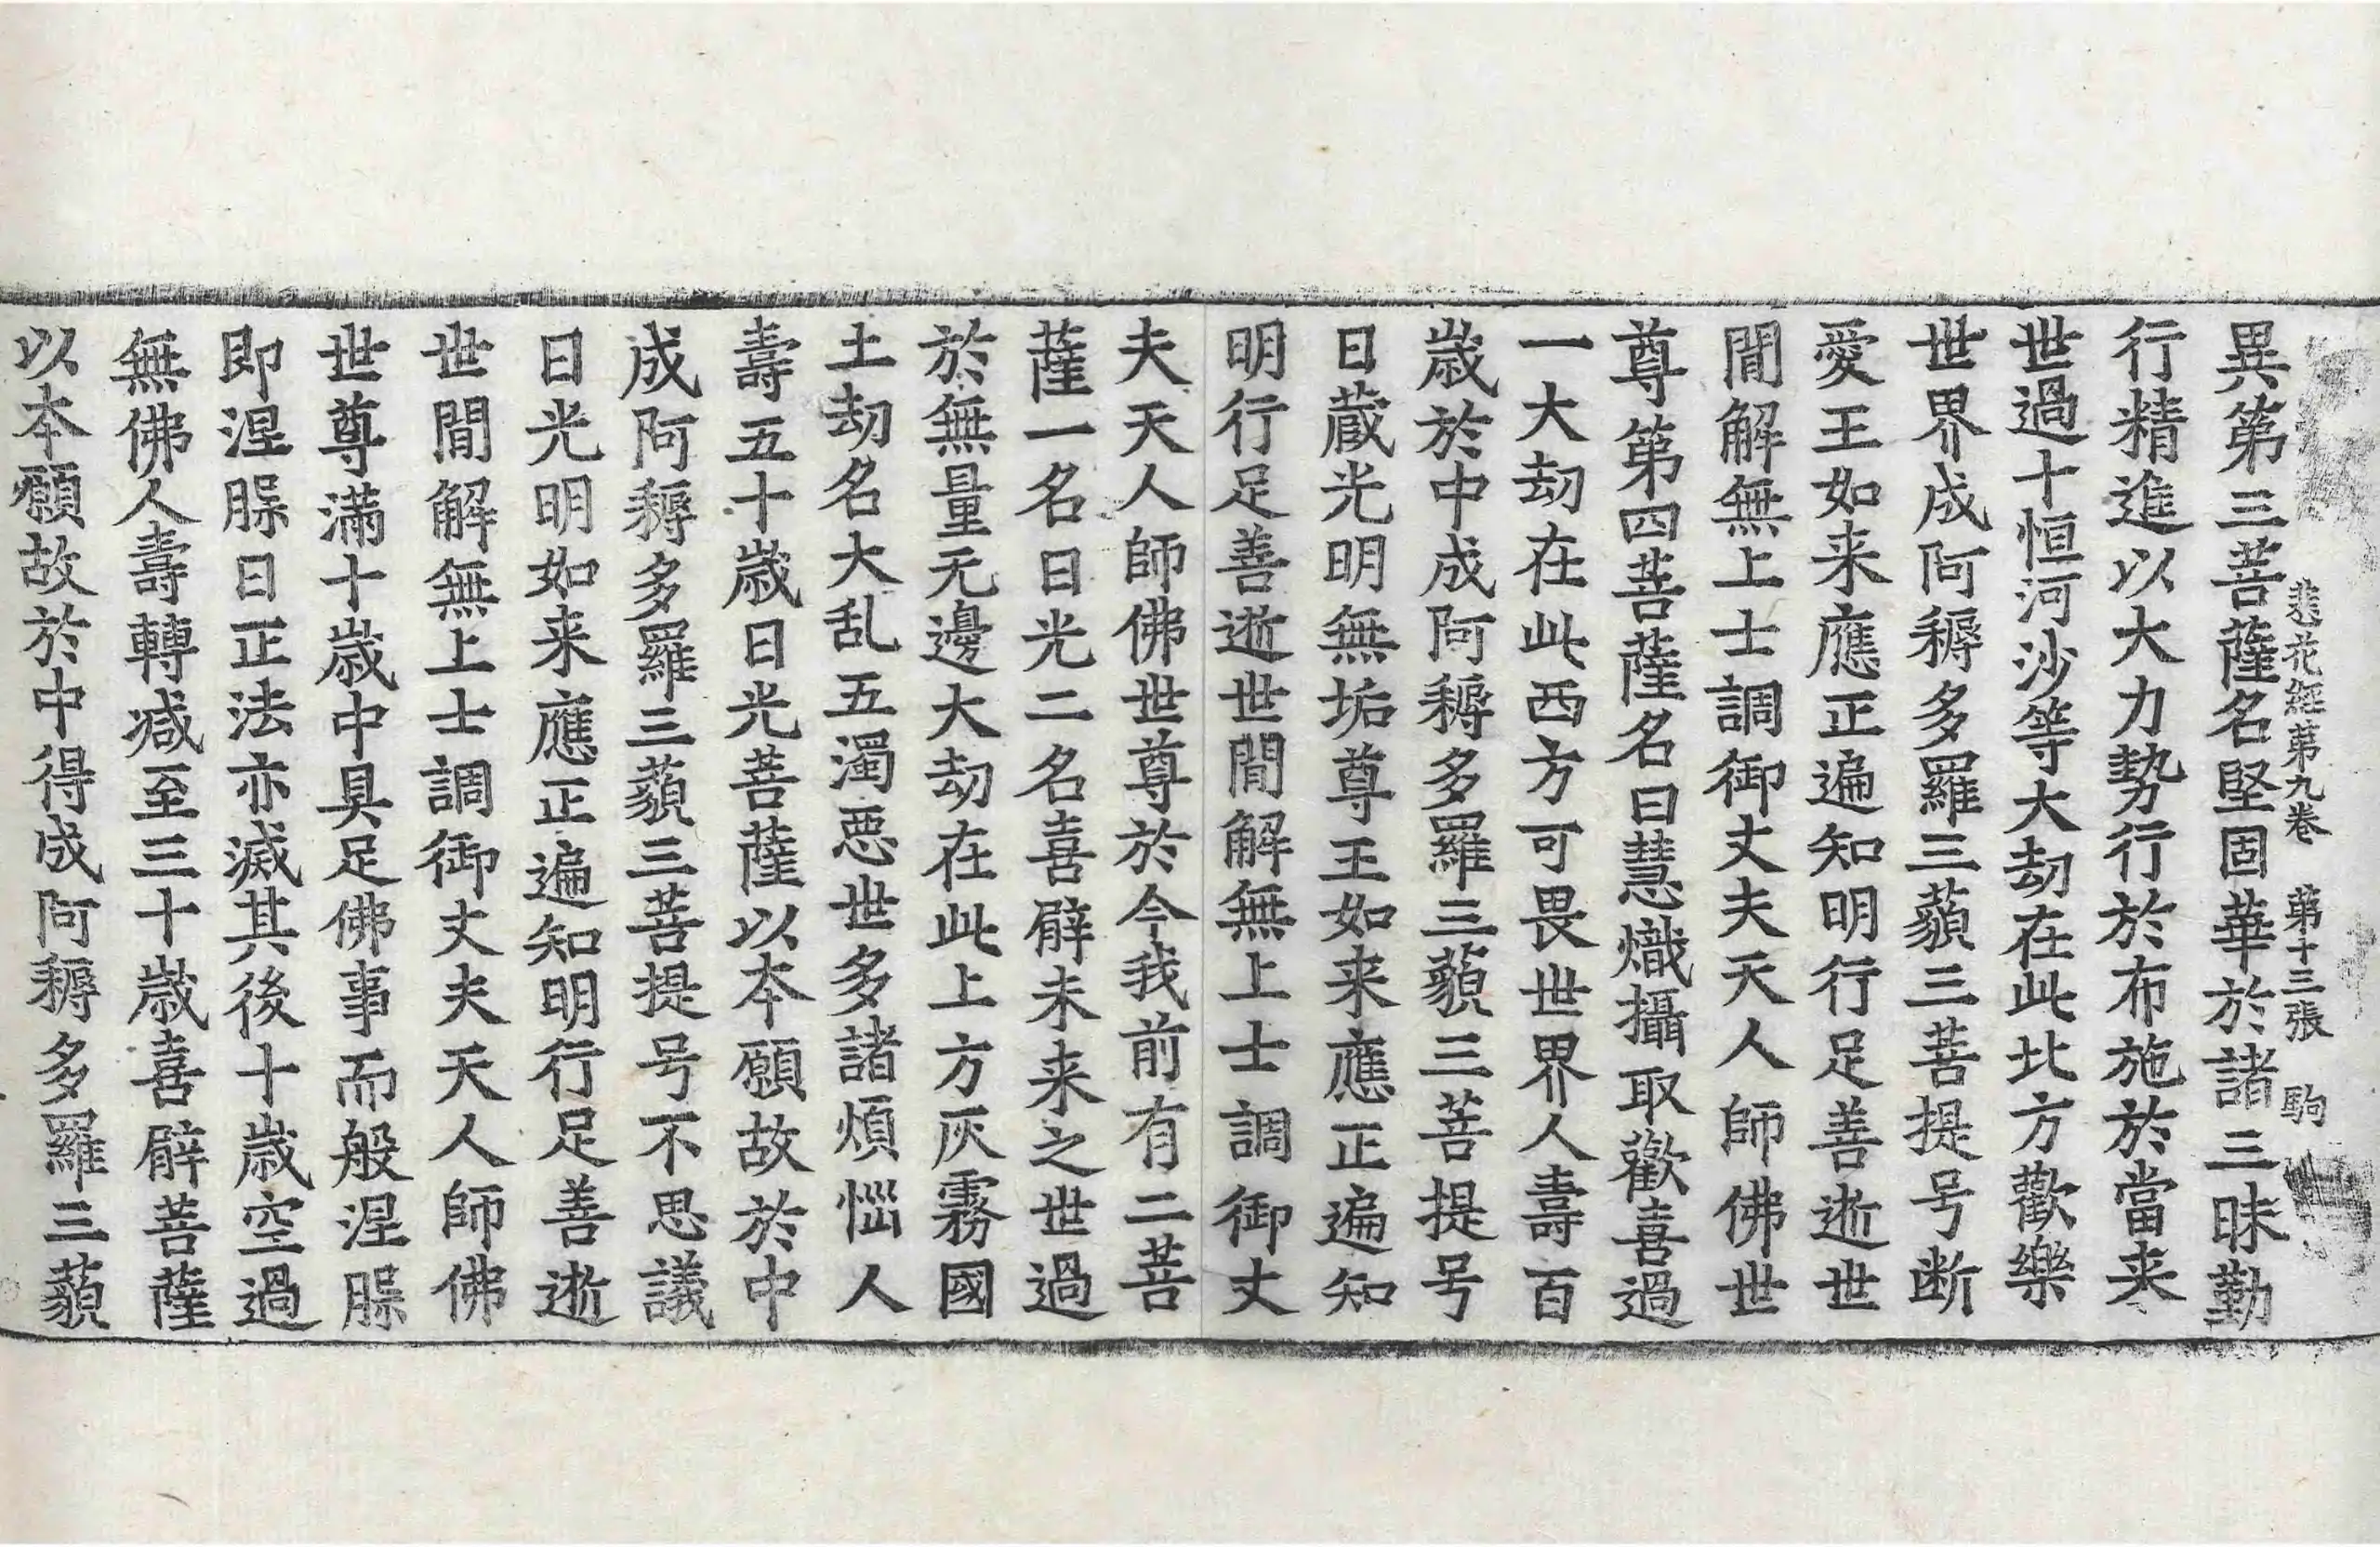 悲花經第九卷 第十三張 駒
異第三菩薩名堅固華於諸三昧勤
行精進以大力勢行於布施於當来
世過十恒河沙等大劫在此北方歡樂
世界成阿耨多羅三藐三菩提号断
愛王如来應正遍知明行足善逝世
閒解無上士調御丈夫天人師佛世
尊第四菩薩名曰慧熾攝取歡喜過
一大劫在此西方可畏世界人壽百
歲於中成阿耨多羅三藐三菩提号
日蔵光明無垢尊王如来應正遍知
明行足善逝世閒解無上士調御丈
夫天人師佛世尊於今我前有二菩
薩一名日光二名喜臂未来之世過
於無量无邊大劫在此上方灰霧國
土劫名大乱五濁惡世多諸煩惱人
壽五十歲日光菩薩以本願故於中
成阿耨多羅三藐三菩提号不思議
日光明如来應正遍知明行足善逝
世閒解無上士調御丈夫天人師佛
世尊滿十歲中具足佛事而般涅槃
即涅槃日正法亦滅其後十歲空過
無佛人壽轉減至三十歲喜臂菩薩
以本願故於中得成阿耨多羅三藐